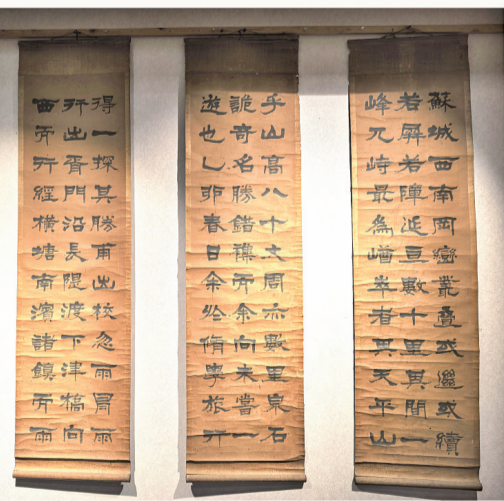 蘇城西南岡巒叢疊或邐或續
若屏若陣延亘數十里其間一
峰兀峙最為崷崒者其天平山
乎山高八十丈周亦數里泉石
詭奇名勝錯襍而余向未嘗一
遊也乙卯春日余於脩學旅行
得一探其勝甫出校忽雨冒雨
行出胥門沿長隄渡下津橋向
西而行經橫塘南濱諸鎮而雨